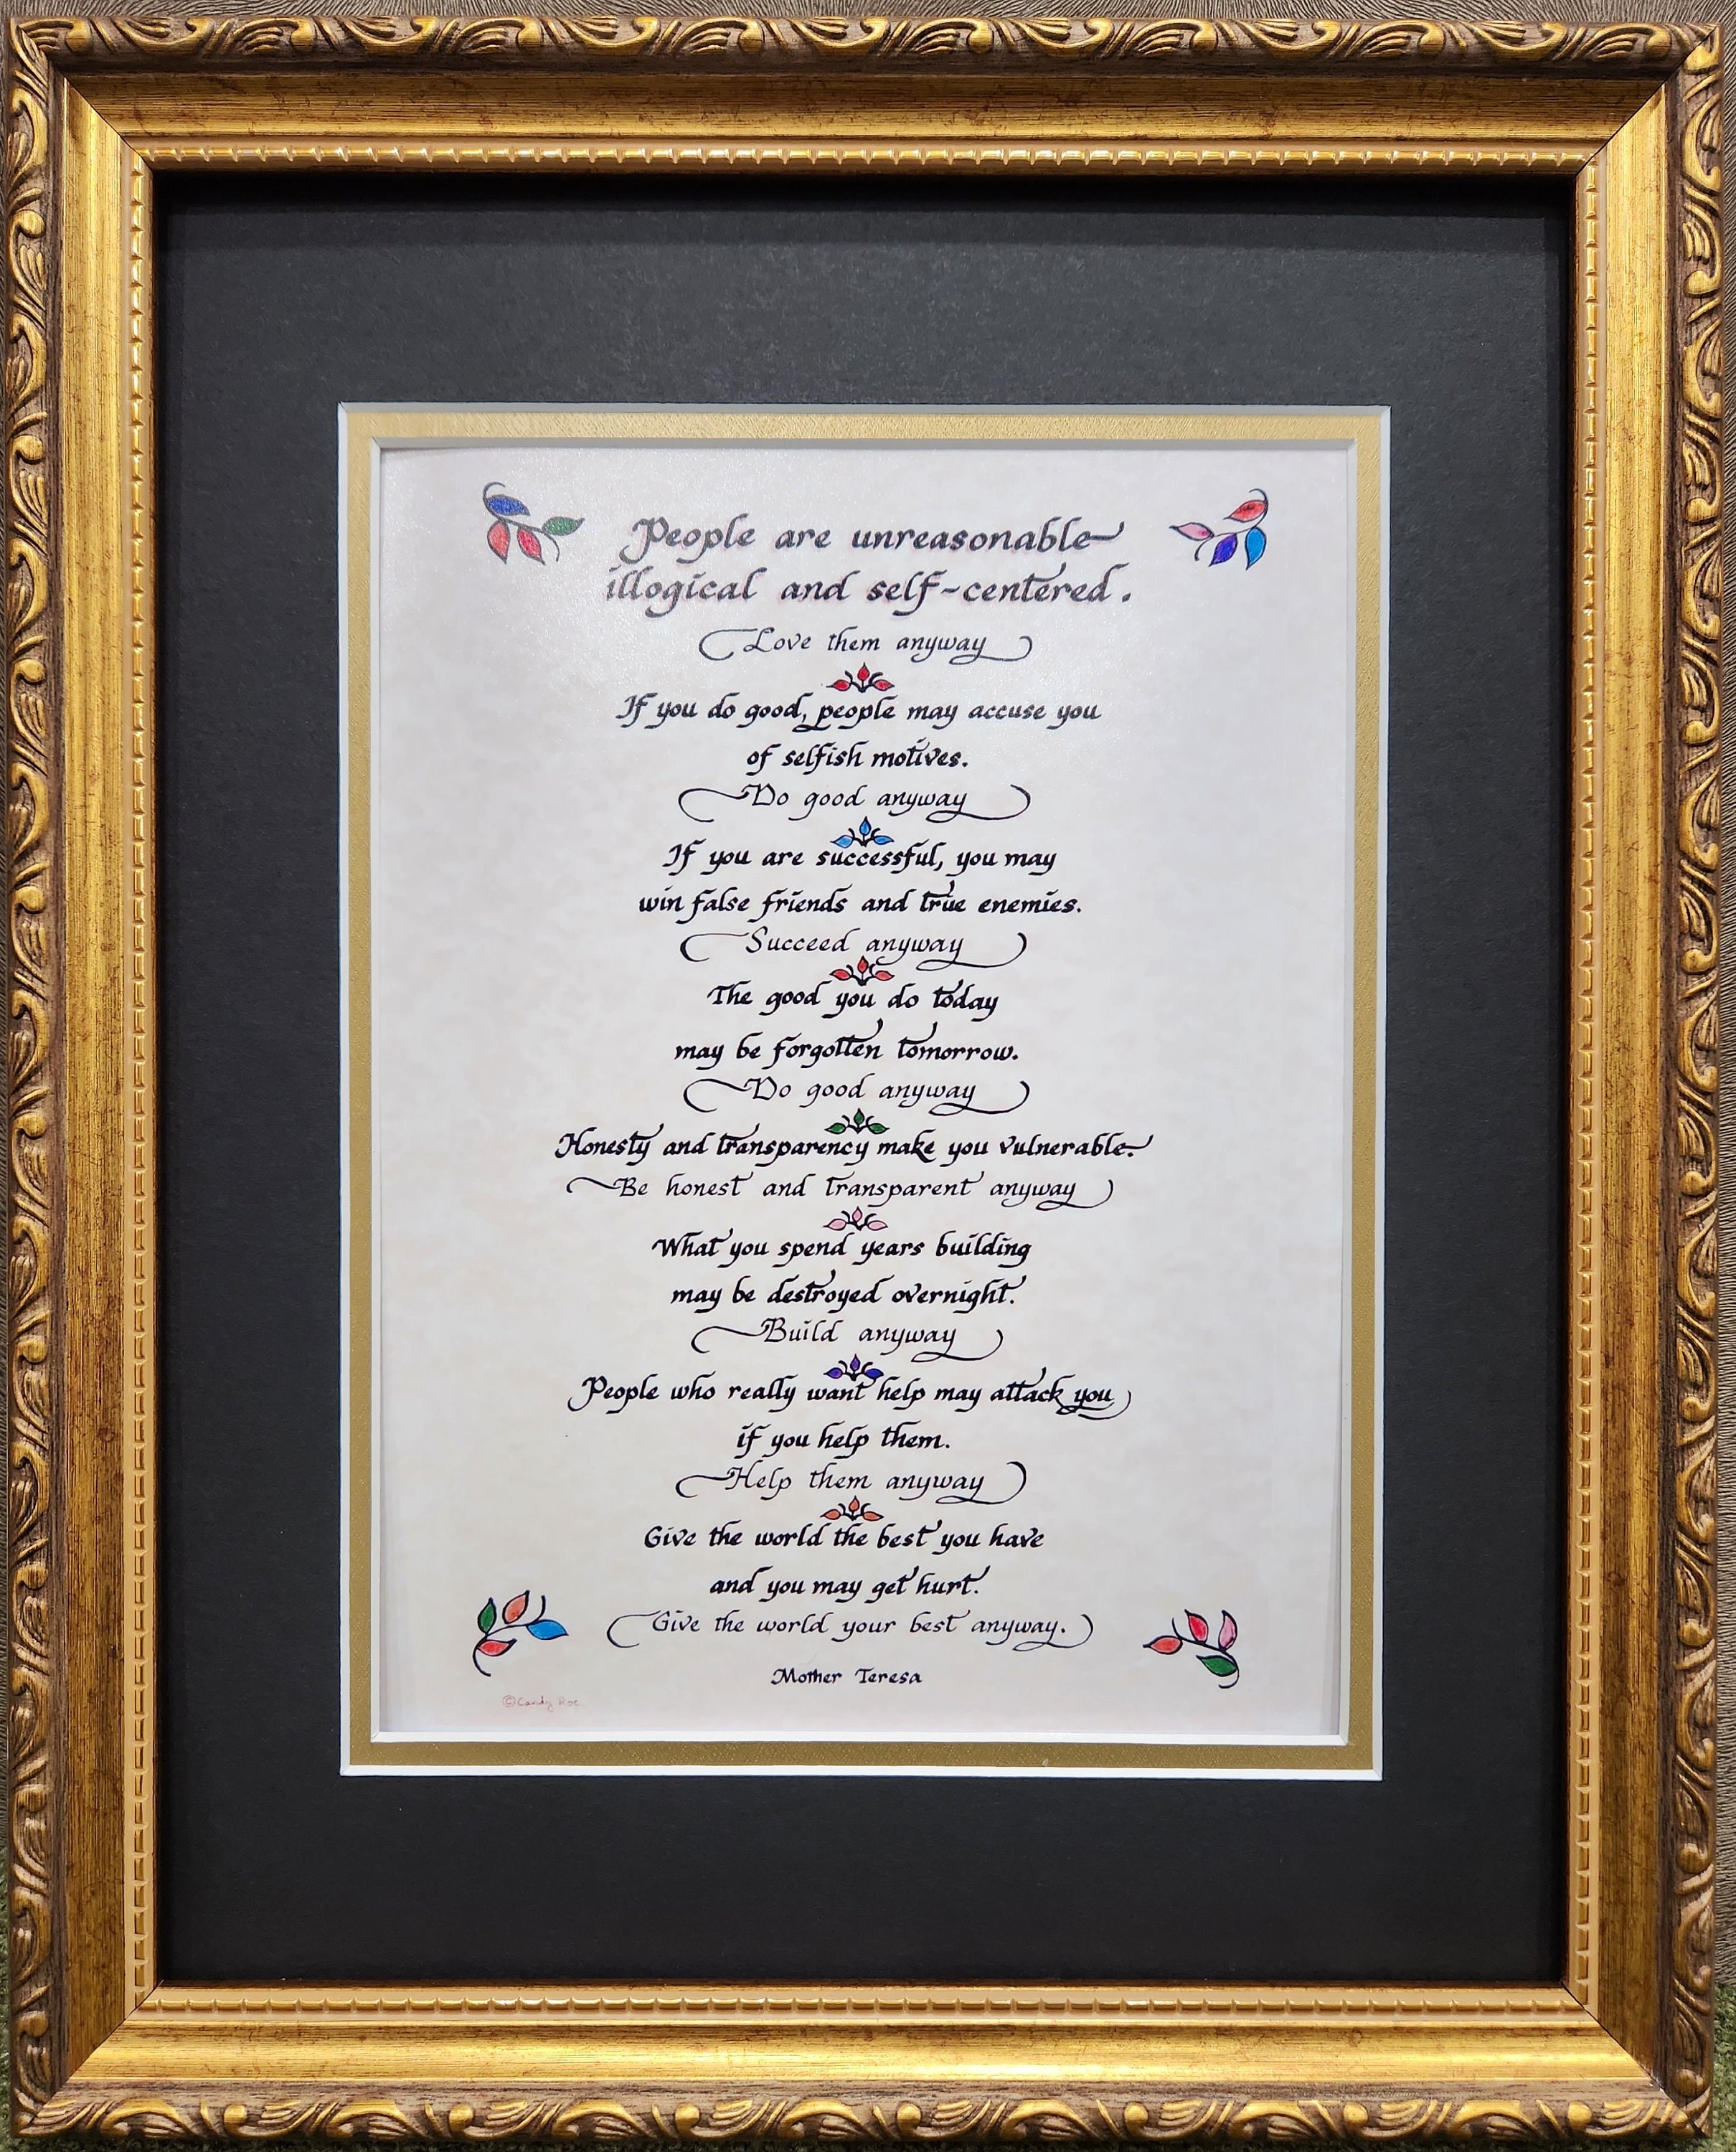 People are unreasonable
illogical and self-centered.
Love them anyway
If you do good, people may accuse you
of selfish motives.
Do good anyway
If you are successful, you may
win false friends and true enemies.
Succeed anyway
The good you do today
may be forgotten tomorrow.
Do good anyway
Honesty and transparency make you vulnerable.
Be honest and transparent anyway
What you spend years building
may be destroyed overnight.
Build anyway
People who really want help may attack you
if you help them.
Help them anyway
Give the world the best you have
and you may get hurt.
Give the world your best anyway.
Mother Teresa
©Candy Roe